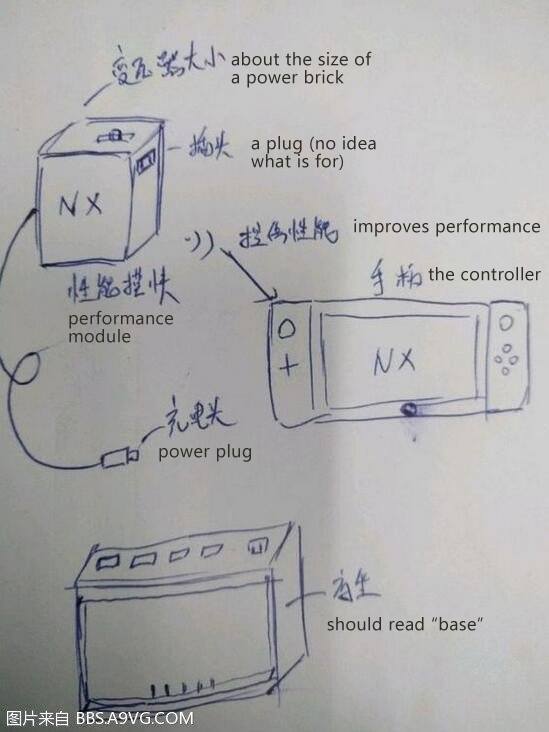 变压器大小
about the size of
a power brick
插头
a plug (no idea
what is for)
NX
性能提升
improves performance
手柄
the controller
性能模块
performance
module
NX
充电头
power plug
底座
should read “base”
图片来自 BBS.A9VG.COM